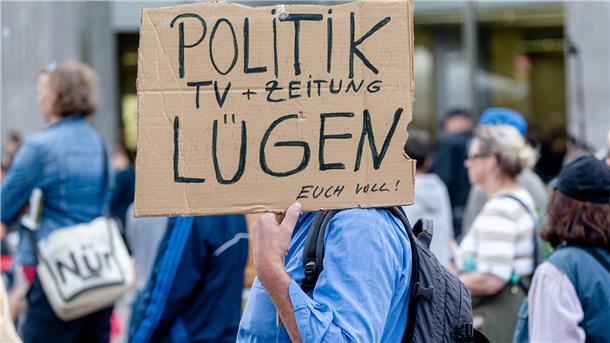 POLITIK
TV + ZEITUNG
LÜGEN
EUCH VOLL!
NÜR